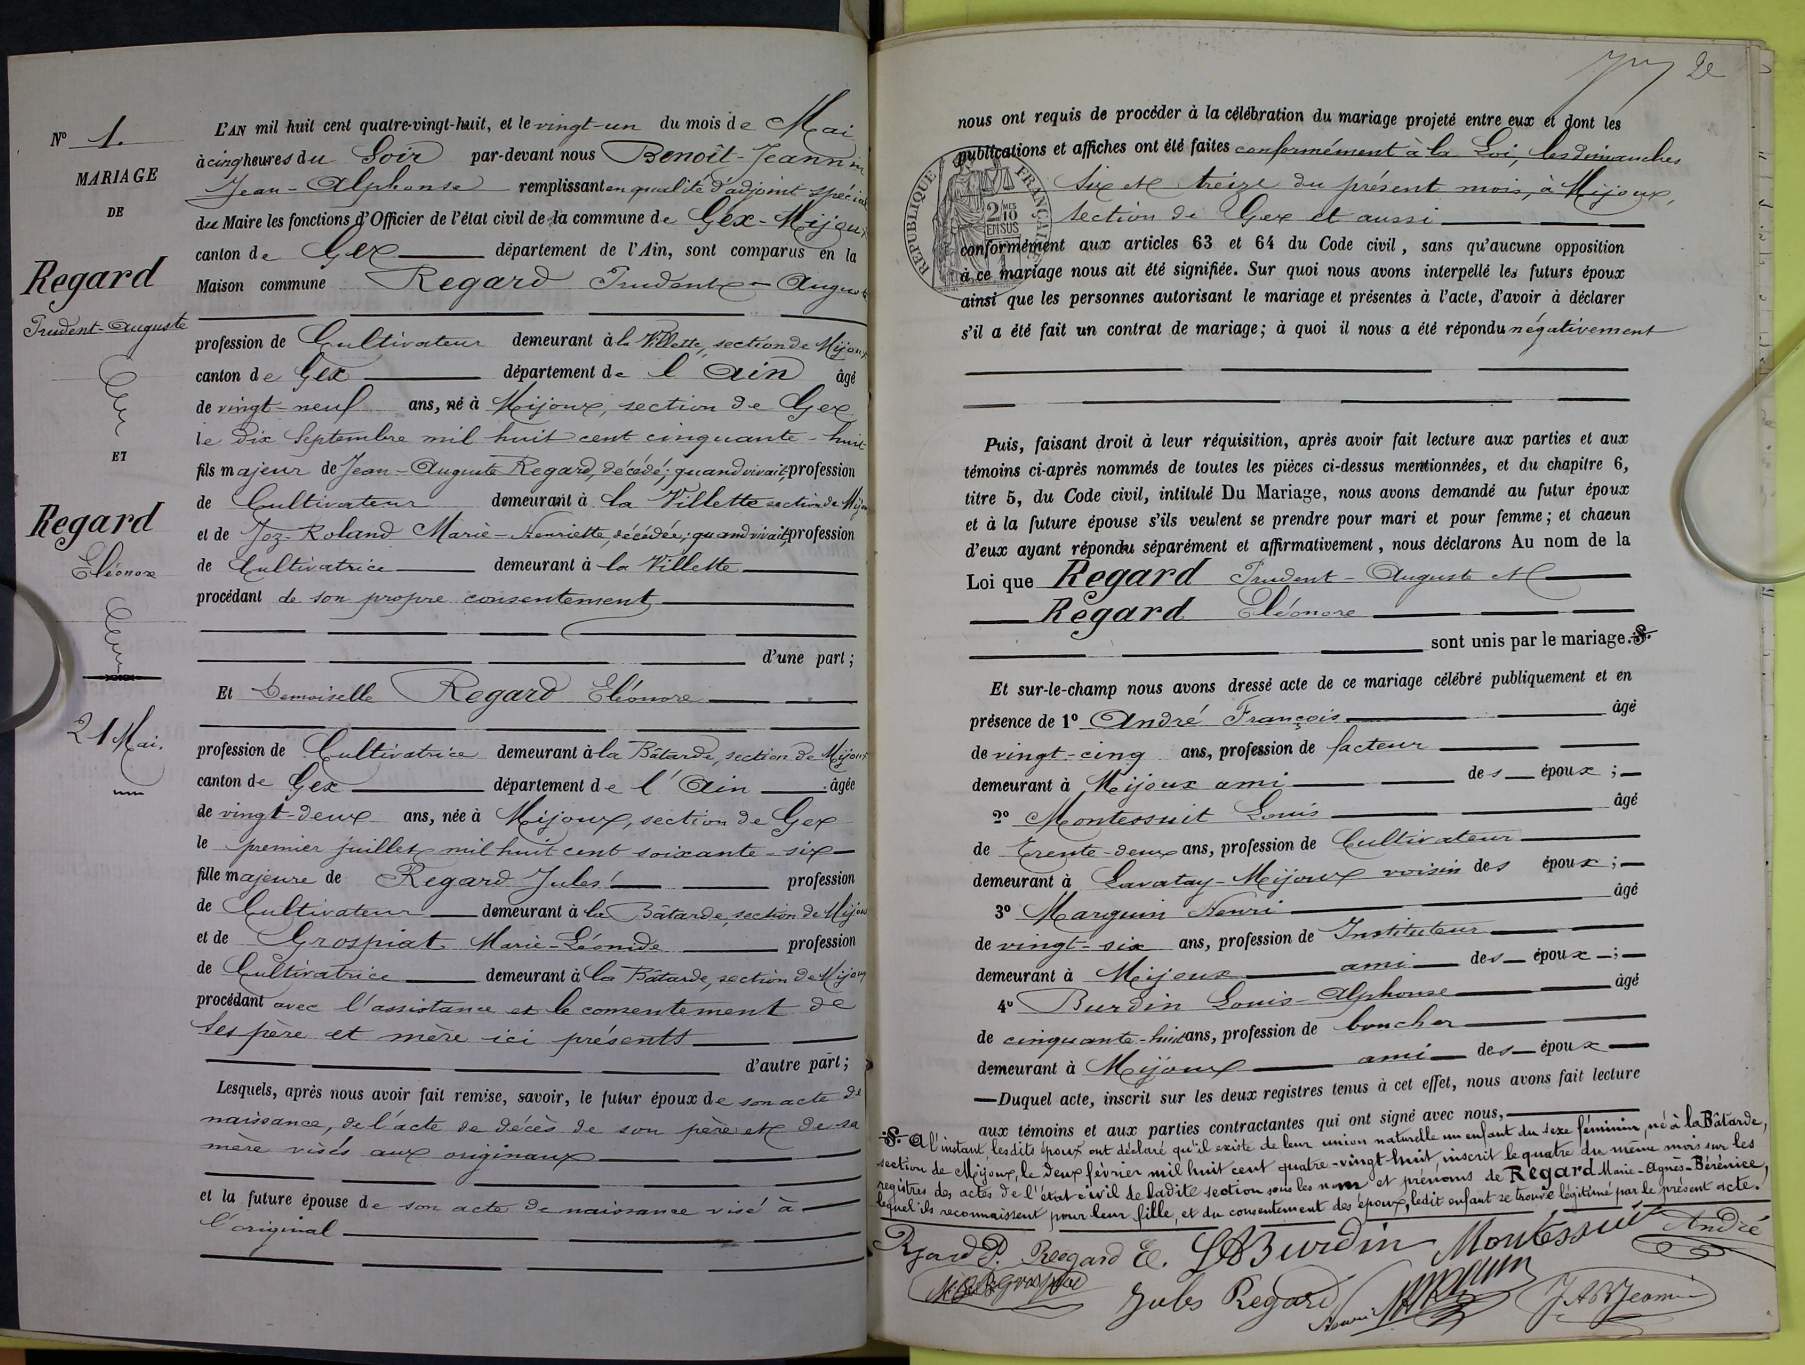 N° 1.
MARIAGE
DE
Regard
Prudent-Auguste
ET
Regard
Eléonore
21 Mai.
L'AN mil huit cent quatre-vingt-huit, et le vingt-un du mois de Mai
à cinq heures du Soir par-devant nous Benoît-Jeannin
Jean-Alphonse remplissant en qualité d'adjoint spécial
du Maire les fonctions d'Officier de l'état civil de la commune de Gex-Mijoux
canton de Gex département de l'Ain, sont comparus en la
Maison commune Regard Prudent-Auguste
profession de Cultivateur demeurant à la Villette, section de Mijoux
canton de Gex département de l'Ain âgé
de vingt-neuf ans, né à Mijoux, section de Gex
le dix Septembre mil huit cent cinquante-huit
fils majeur de Jean-Auguste Regard, décédé; quand vivait, profession
de Cultivateur demeurant à la Villette section de Mijoux
et de Joz-Roland Marie-Henriette, décédée; quand vivait, profession
de Cultivatrice demeurant à la Villette
procédant de son propre consentement
d'une part;
Et Demoiselle Regard Eléonore
profession de Cultivatrice demeurant à la Bâtarde, section de Mijoux
canton de Gex département de l'Ain âgée
de vingt-deux ans, née à Mijoux, section de Gex
le premier juillet mil huit cent soixante-six
fille majeure de Regard Jules profession
de Cultivateur demeurant à la Bâtarde, section de Mijoux
et de Grospiat Marie-Léonide profession
de Cultivatrice demeurant à la Bâtarde, section de Mijoux
procédant avec l'assistance et le consentement de
Ses père et mère ici présents
d'autre part;
Lesquels, après nous avoir fait remise, savoir, le futur époux de son acte de
naissance, de l'acte de décès de son père et de sa
mère visés aux originaux
et la future épouse de son acte de naissance visé à
l'original
2e
nous ont requis de procéder à la célébration du mariage projeté entre eux et dont les
publications et affiches ont été faites conformément à la Loi, les dimanches
Six et treize du présent mois, à Mijoux,
section de Gex et aussi
conformément aux articles 63 et 64 du Code civil, sans qu'aucune opposition
à ce mariage nous ait été signifiée. Sur quoi nous avons interpellé les futurs époux
ainsi que les personnes autorisant le mariage et présentes à l'acte, d'avoir à déclarer
s'il a été fait un contrat de mariage; à quoi il nous a été répondu négativement
RÉPUBLIQUE FRANÇAISE
2/10 MES
EN SUS
Puis, faisant droit à leur réquisition, après avoir fait lecture aux parties et aux
témoins ci-après nommés de toutes les pièces ci-dessus mentionnées, et du chapitre 6,
titre 5, du Code civil, intitulé Du Mariage, nous avons demandé au futur époux
et à la future épouse s'ils veulent se prendre pour mari et pour femme; et chacun
d'eux ayant répondu séparément et affirmativement, nous déclarons Au nom de la
Loi que Regard Prudent-Auguste et
Regard Eléonore
sont unis par le mariage. .S.
Et sur-le-champ nous avons dressé acte de ce mariage célébré publiquement et en
présence de 1° André François âgé
de vingt-cinq ans, profession de facteur
demeurant à Mijoux ami des époux;
2° Montessuit Louis âgé
de trente-deux ans, profession de Cultivateur
demeurant à Lavatay-Mijoux voisin des époux;
3° Marquin Henri âgé
de vingt-six ans, profession de Instituteur
demeurant à Mijoux ami des époux;
4° Burdin Louis-Alphonse âgé
de cinquante-huit ans, profession de boucher
demeurant à Mijoux ami des époux
—Duquel acte, inscrit sur les deux registres tenus à cet effet, nous avons fait lecture
aux témoins et aux parties contractantes qui ont signé avec nous,
.S. A l'instant, lesdits époux ont déclaré qu'il existe de leur union naturelle un enfant du sexe féminin, né à la Bâtarde,
section de Mijoux, le deux février mil huit cent quatre-vingt-huit, inscrit le quatre du même mois sur les
registres des actes de l'état-civil de ladite section sous les nom et prénoms de Regard Marie-Agnès-Bérénice,
lequel ils reconnaissent pour leur fille, et du consentement des époux, ledit enfant se trouve légitimé par le présent acte.
Regard P. Regard E. LA Burdin Montessuit André
Jules Regard Henri Marquin JAB Jeannin